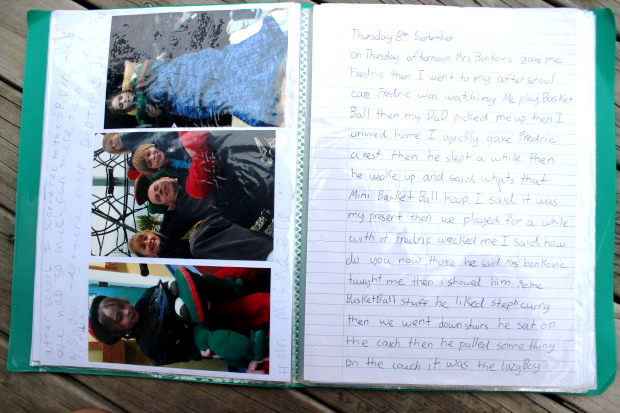 Thursday 8th September
on Thursday afternoon Mrs Benkovic gave me
Fredric then I went to my afterschool
care Fredric was watching Me play Basket
Ball then my DaD picked me up then I
arrived home I quickly gave Fredric
a rest then he slept a while then
he woke up and said whats that
Mini Basket Ball hoop I said it was
my present then we played for a while
with it Fredric wrecked me I said how
do you now those he said Mrs benkovic
taught me then i showed him some
BasketBall stuff he liked steph curry
then we went down stairs he sat on
the couch then he pulled some thing
on the couch it was the lazy Boy